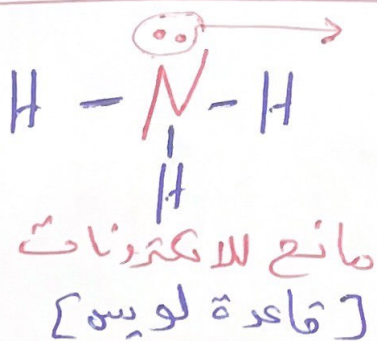 H - N - H
H
مانح للاكترونات
[قاعدة لويس]